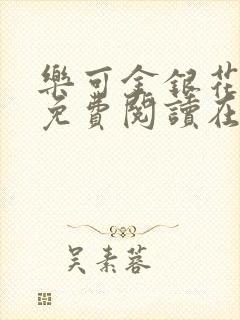 樂可金銀花
免費閱讀在
吳素蓉